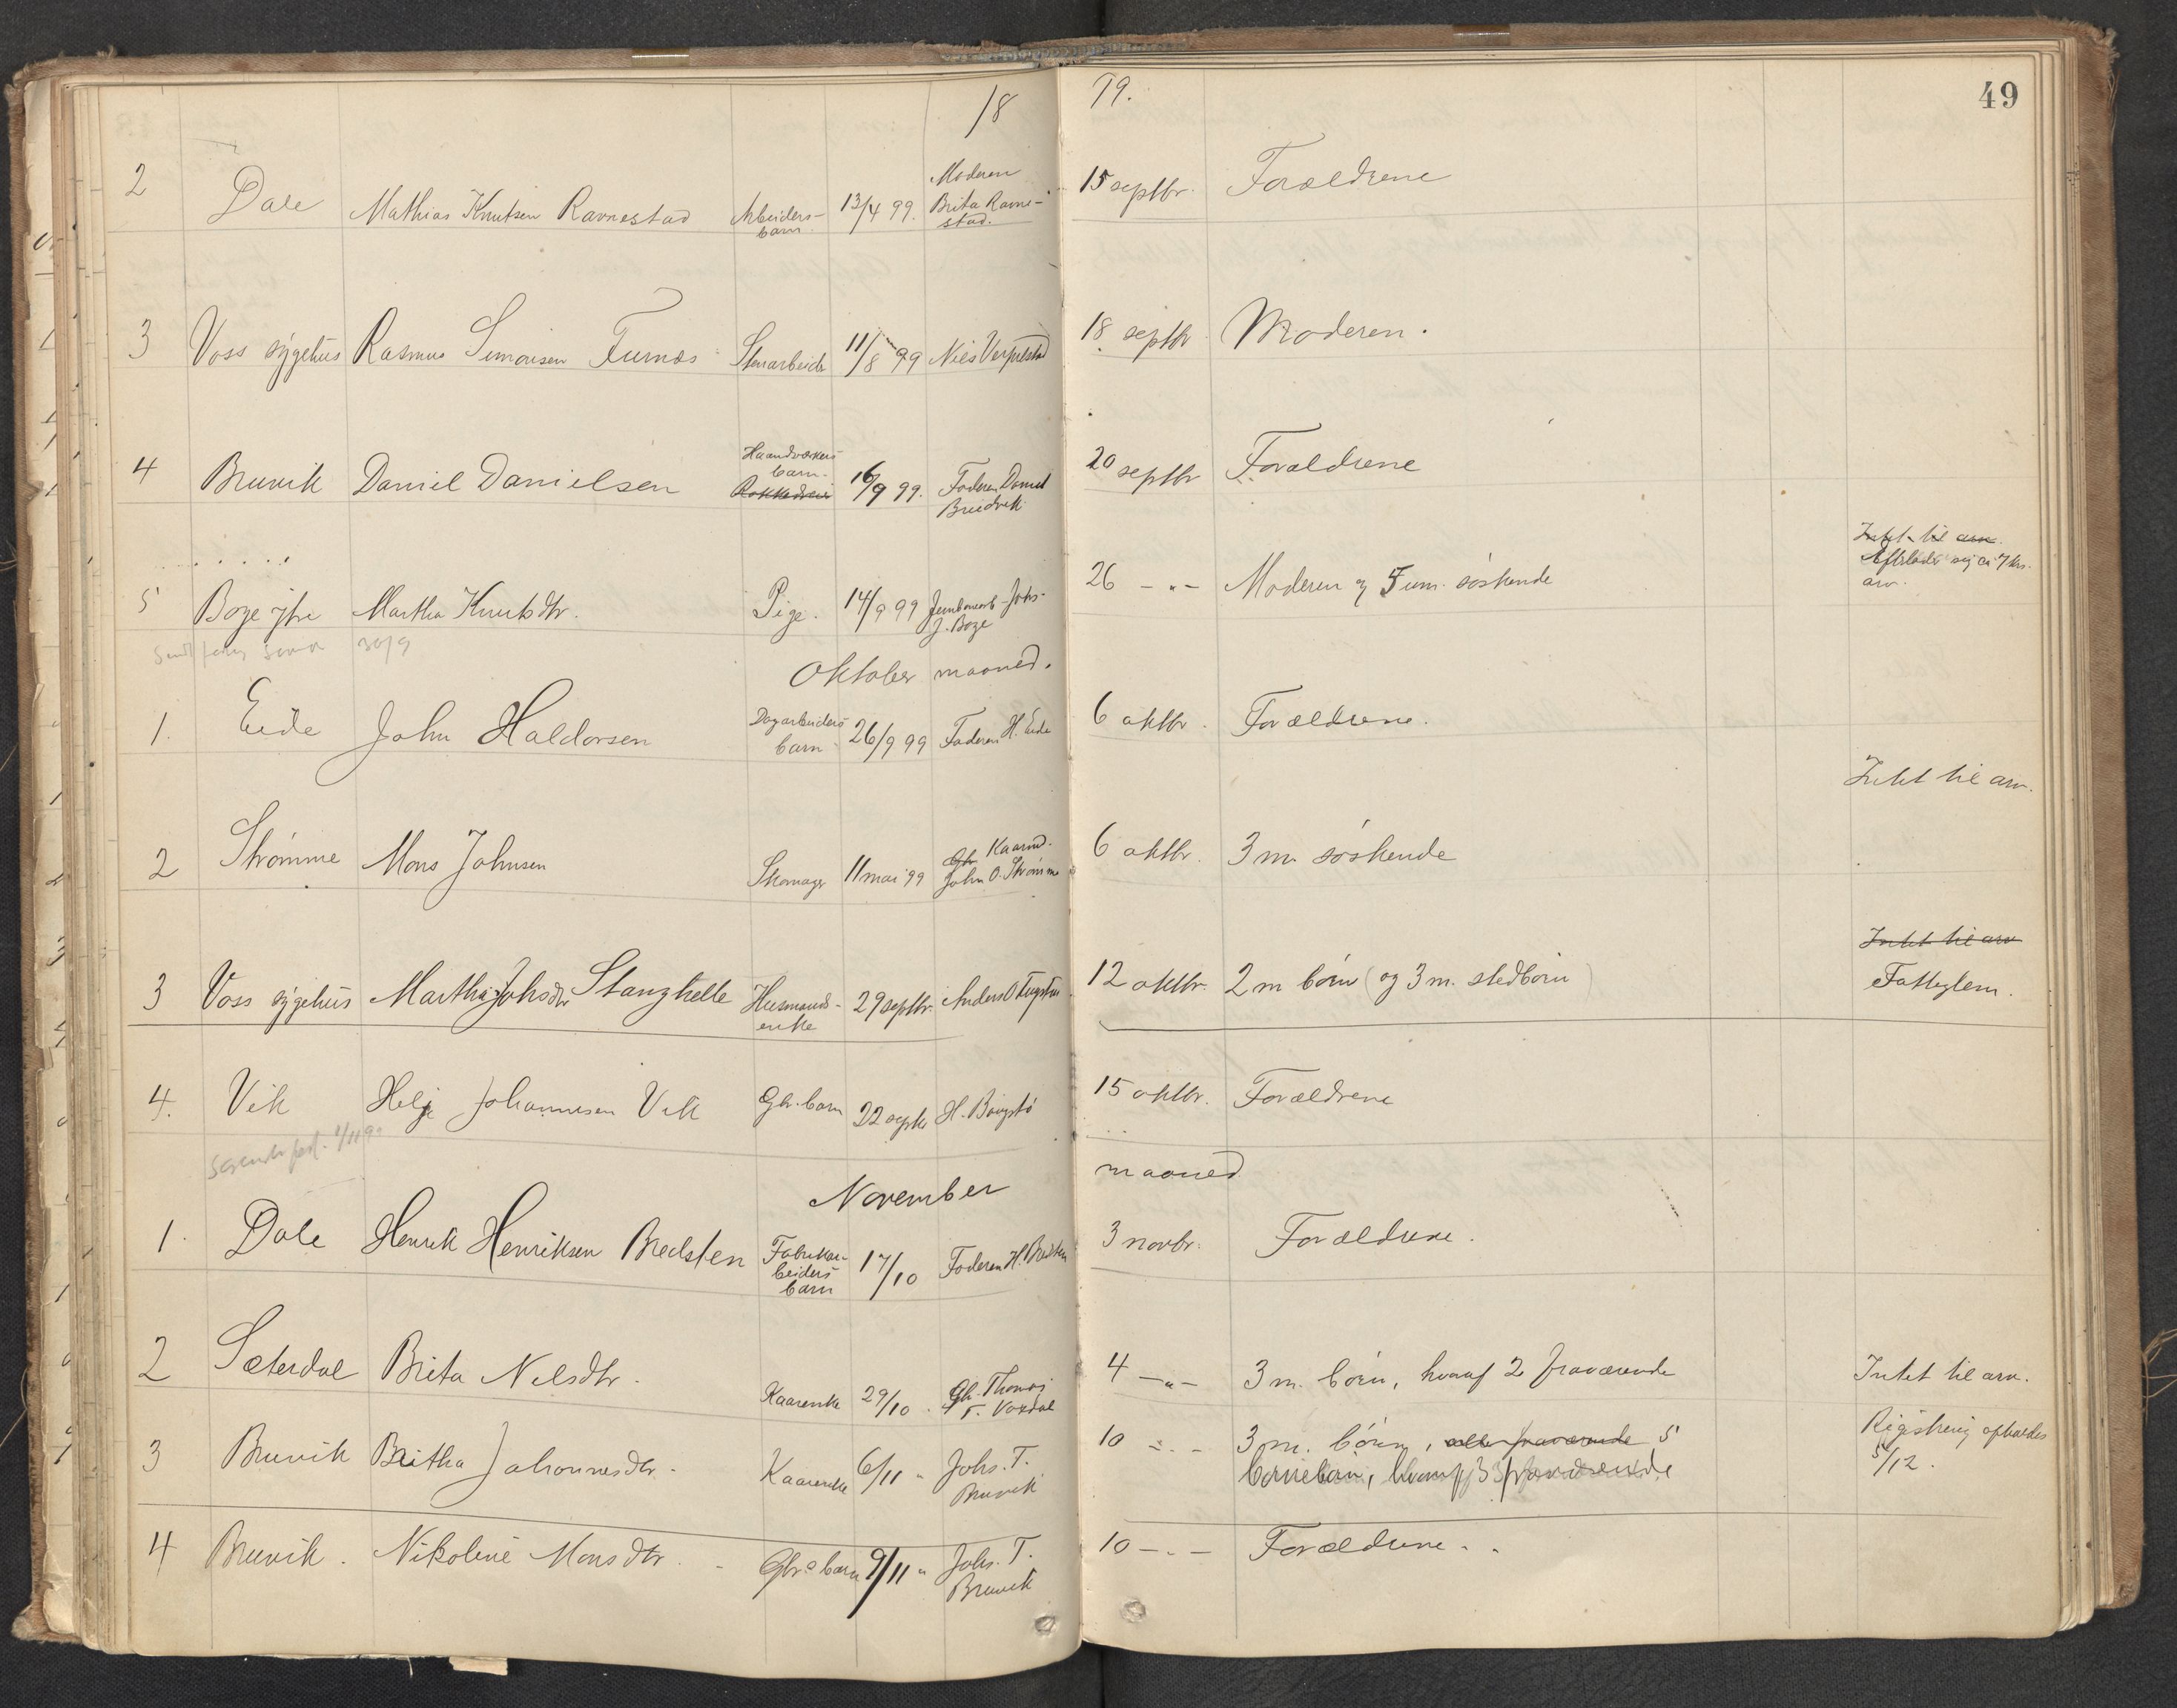 18 99. 49
2 Dale Mathias Knutsen Ravnestad Arbeiders- 13/4 99. Moderen 15 septbr. Forældrene
barn. Brita Ravne-
stad.
3 Voss sygehus Rasmus Simonsen Furnæs Stenarbeider 11/8 99 Nils 18 septbr. Moderen.
4 Bruvik Daniel Danielsen Haandværkers 16/9 99. Faderen Daniel 20 septbr Forældrene
barn. Bruvik
5 Boge ytre Martha Knutsdtr. Pige. 14/9 99 Johs. 26 -"- Moderen og 5 um. søskende Intet til arv.
J. Boge Efterlader sig ca 7 krs.
arv.
30/9
Oktober maaned.
1. Eide John Haldorsen Dagarbeiders 26/9 99 Faderen H. Eide 6 oktbr. Forældrene.
barn
Intet til arv.
2 Strømme Mons Johnsen Skomager 11 mai 99 Gbr. Kaarmd. 6 oktbr. 3 m. søskende
John O. Strømme
3 Voss sygehus Martha Johsdtr Stanghelle Husmands- 29 septbr. Anders O 12 oktbr. 2 m børn (og 3 m. stedbørn) Intet til arv
enke Fatteglem.
4. Vik Helje Johannesen Vik Gbr. barn 22 septbr H. 15 oktbr. Forældrene
November maaned
1. Dale Henrik Henriksen Bredsten Fabrikar- 17/10 Faderen H. Bredsten 3 novbr. Forældrene.
beiders
barn
2 Sæterdal Brita Nilsdtr. Kaarenke 29/10. Gbr. Thomas 4 -"- 3 m. børn, hvoraf 2 fraværende Intet til arv.
T. Vaxdal
3 Bruvik Britha Johannesdtr. Kaarenke 6/11 " Johs. T. 10 -"- 3 m. børn, alle fraværende 5 Registrering afholdes
Bruvik børnebørn, hvoraf 3 fraværende 5/12.
4 Bruvik. Nikoline Monsdtr. Gbr.s barn 9/11 " Johs. T. 10 -"- Forældrene.
Bruvik